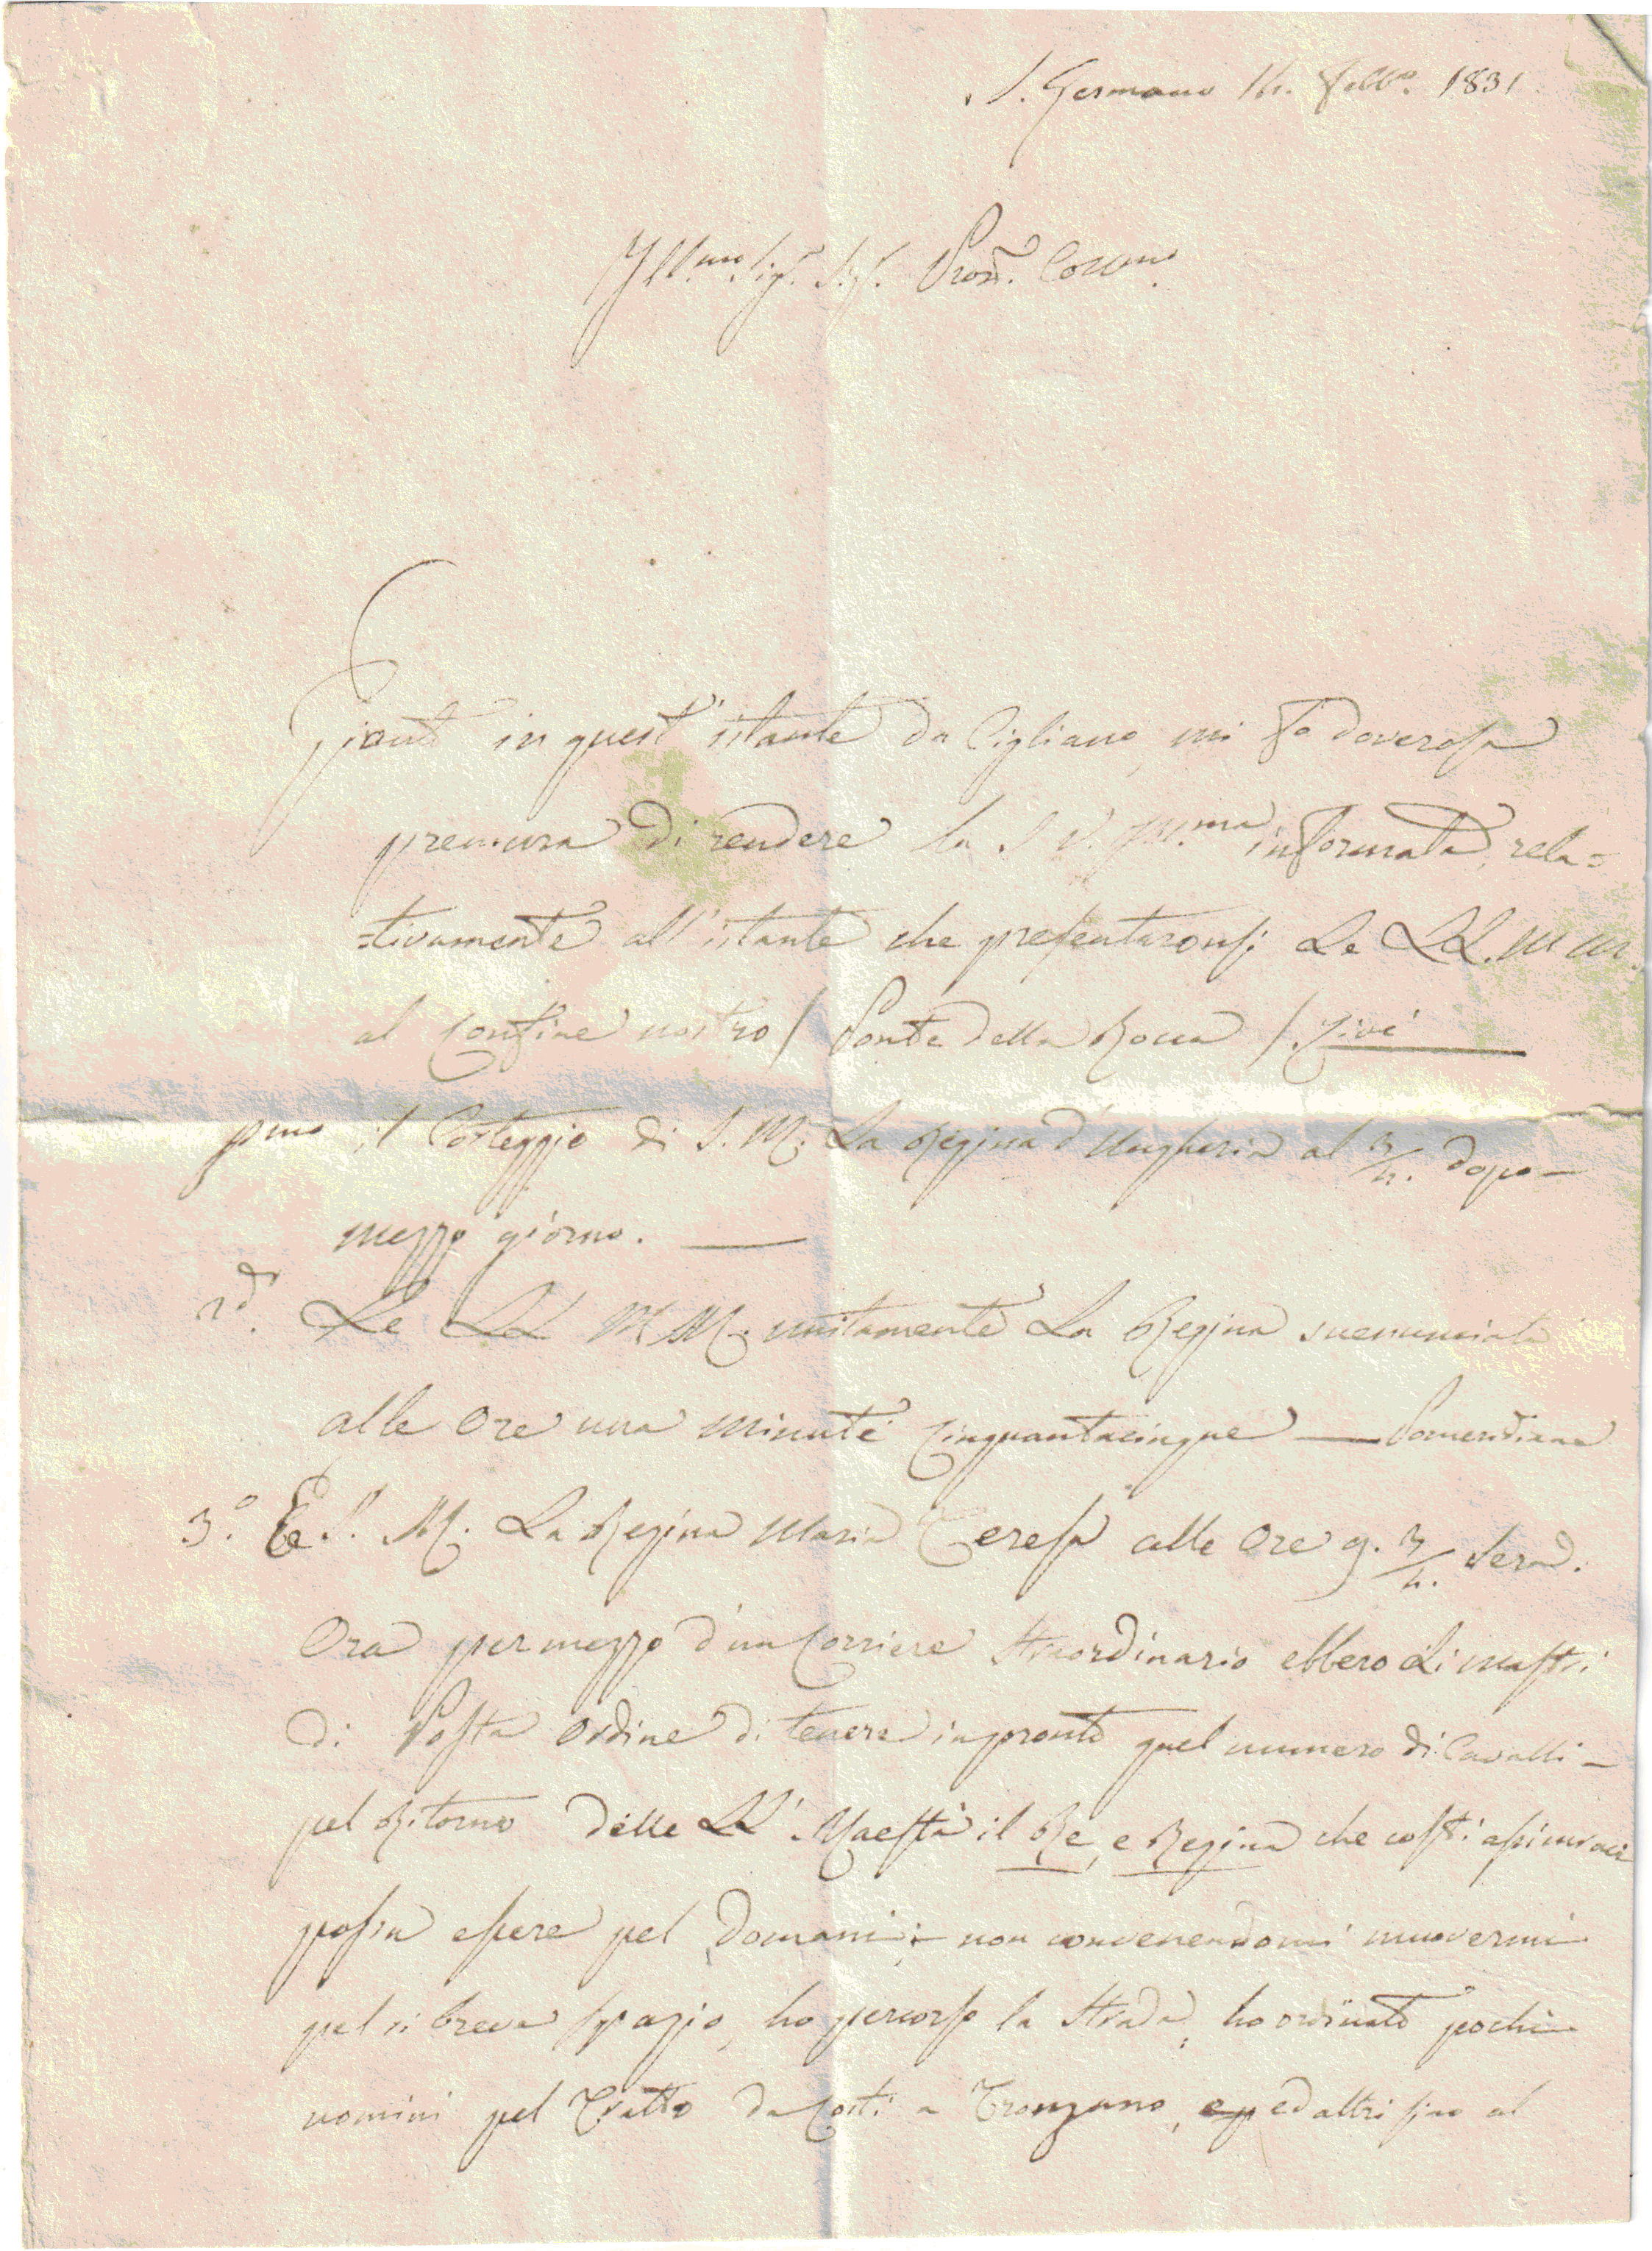 S. Germano 14. Febb.º 1831
Ill.mo Sig.r Sig.r Pron. Colmo.
Giunto in quest'istante da Cigliano, mi fò doverosa
premura di rendere la S V. Ill.ma informata, rela=
=tivamente all'istante che presentaronsi Le LL. MM.
al confine nostro / Ponte della Rocca /. Zivè
pmo il Corteggio di S. M. La Regina d'Ungheria al 3/4. dopo —
mezzo giorno. —
2d. Le LL MM. unitamente La Regina suenunciata
alle Ore una minuti Cinquantacinque — Pomeridiane
3.º E S. M. La Regina Maria Teresa alle Ore 9. 3/4. Sera.
Ora per mezzo d'un Corriere straordinario ebbero Li mastri
di Posta Ordine di tenere in pronto quel numero di Cavalli —
pel Ritorno delle LL Maestà il Re, e Regina che costì
possa essere pel Domani; non convenendomi muovermi
pel sì breve spazio, ho percorso la Strada, ho ordinato pochi
uomini pel Tratto da Costì a Tronzano, ed altri sino al